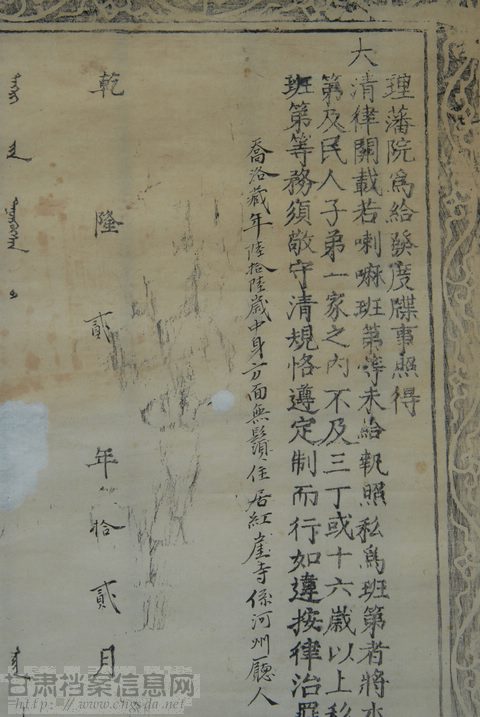 理藩院爲給發度牒事照得
大清律開載若喇嘛班第等未給執照私爲班第者將本
第及民人子弟一家之內不及三丁或十六歲以上私
班第等務須敬守清規恪遵定制而行如違按律治罪
喬洛藏年陸拾陸歲中身方面無鬚住居紅崖寺係河州廳人
乾隆貳年拾貳月
甘肃档案信息网
http://www.cngsda.net